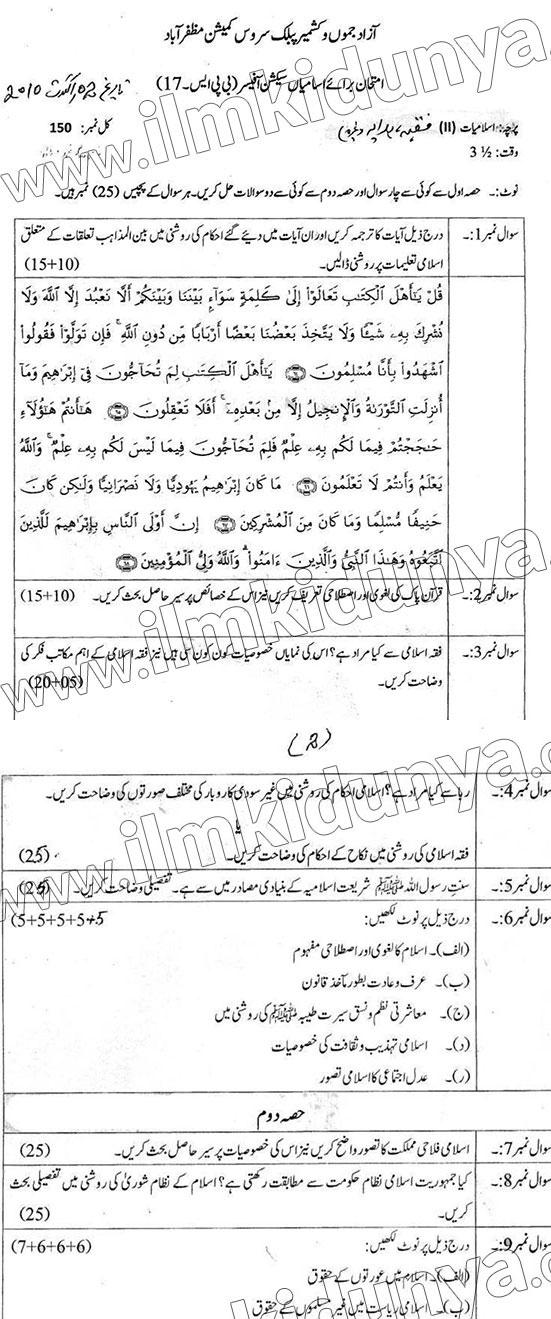 آزاد جموں و کشمیر پبلک سروس کمیشن مظفر آباد
امتحان برائے اسامیاں سیکشن آفیسر (بی پی ایس۔17)
پرچہ: اسلامیات (II)
کل نمبر: 150
وقت: 3 ½
نوٹ:۔ حصہ اول سے کوئی سے چار سوال اور حصہ دوم سے کوئی سے دو سوالات حل کریں۔ ہر سوال کے پچیس (25) نمبر ہیں۔
سوال نمبر 1:۔ درج ذیل آیات کا ترجمہ کریں اور ان آیات میں دیئے گئے احکام کی روشنی میں بین المذاہب تعلقات کے متعلق
اسلامی تعلیمات پر روشنی ڈالیں۔ (15+10)
قُلْ يَٰٓأَهْلَ ٱلْكِتَٰبِ تَعَالَوْا۟ إِلَىٰ كَلِمَةٍ سَوَآءٍۭ بَيْنَنَا وَبَيْنَكُمْ أَلَّا نَعْبُدَ إِلَّا ٱللَّهَ وَلَا
نُشْرِكَ بِهِۦ شَيْـًٔا وَلَا يَتَّخِذَ بَعْضُنَا بَعْضًا أَرْبَابًا مِّن دُونِ ٱللَّهِ ۚ فَإِن تَوَلَّوْا۟ فَقُولُوا۟
ٱشْهَدُوا۟ بِأَنَّا مُسْلِمُونَ ﴿٦٤﴾ يَٰٓأَهْلَ ٱلْكِتَٰبِ لِمَ تُحَآجُّونَ فِىٓ إِبْرَٰهِيمَ وَمَآ
أُنزِلَتِ ٱلتَّوْرَىٰةُ وَٱلْإِنجِيلُ إِلَّا مِنۢ بَعْدِهِۦٓ ۚ أَفَلَا تَعْقِلُونَ ﴿٦٥﴾ هَٰٓأَنتُمْ هَٰٓؤُلَآءِ
حَٰجَجْتُمْ فِيمَا لَكُم بِهِۦ عِلْمٌ فَلِمَ تُحَآجُّونَ فِيمَا لَيْسَ لَكُم بِهِۦ عِلْمٌ ۚ وَٱللَّهُ
يَعْلَمُ وَأَنتُمْ لَا تَعْلَمُونَ ﴿٦٦﴾ مَا كَانَ إِبْرَٰهِيمُ يَهُودِيًّا وَلَا نَصْرَانِيًّا وَلَٰكِن كَانَ
حَنِيفًا مُّسْلِمًا وَمَا كَانَ مِنَ ٱلْمُشْرِكِينَ ﴿٦٧﴾ إِنَّ أَوْلَى ٱلنَّاسِ بِإِبْرَٰهِيمَ لَلَّذِينَ
ٱتَّبَعُوهُ وَهَٰذَا ٱلنَّبِىُّ وَٱلَّذِينَ ءَامَنُوا۟ ۗ وَٱللَّهُ وَلِىُّ ٱلْمُؤْمِنِينَ ﴿٦٨﴾
سوال نمبر 2:۔ قرآن پاک کی لغوی اور اصطلاحی تعریف کریں نیز اس کے خصائص پر سیر حاصل بحث کریں۔ (15+10)
سوال نمبر 3:۔ فقہ اسلامی سے کیا مراد ہے؟ اس کی نمایاں خصوصیات کون کون سی ہیں نیز فقہ اسلامی کے اہم مکاتب فکر کی
وضاحت کریں۔ (20+05)
(2)
سوال نمبر 4:۔ ربا سے کیا مراد ہے؟ اسلامی احکام کی روشنی میں غیر سودی کاروبار کی مختلف صورتوں کی وضاحت کریں۔
یا
فقہ اسلامی کی روشنی میں نکاح کے احکام کی وضاحت کریں۔ (25)
سوال نمبر 5:۔ سنت رسول اللہ ﷺ شریعت اسلامیہ کے بنیادی مصادر میں سے ہے۔ تفصیلی وضاحت کریں۔ (25)
سوال نمبر 6:۔ درج ذیل پر نوٹ لکھیں: (5+5+5+5+5)
(الف)۔ اسلام کا لغوی اور اصطلاحی مفہوم
(ب)۔ عرف و عادت بطور مآخذ قانون
(ج)۔ معاشرتی نظم و نسق سیرت طیبہ ﷺ کی روشنی میں
(د)۔ اسلامی تہذیب و ثقافت کی خصوصیات
(ر)۔ عدل اجتماعی کا اسلامی تصور
حصہ دوم
سوال نمبر 7:۔ اسلامی فلاحی مملکت کا تصور واضح کریں نیز اس کی خصوصیات پر سیر حاصل بحث کریں۔ (25)
سوال نمبر 8:۔ کیا جمہوریت اسلامی نظام حکومت سے مطابقت رکھتی ہے؟ اسلام کے نظام شوریٰ کی روشنی میں تفصیلی بحث
کریں۔ (25)
سوال نمبر 9:۔ درج ذیل پر نوٹ لکھیں: (7+6+6+6)
(الف)۔ اسلام میں عورتوں کے حقوق
(ب)۔ اسلامی ریاست میں غیر مسلموں کے حقوق
www.ilmkidunya.com